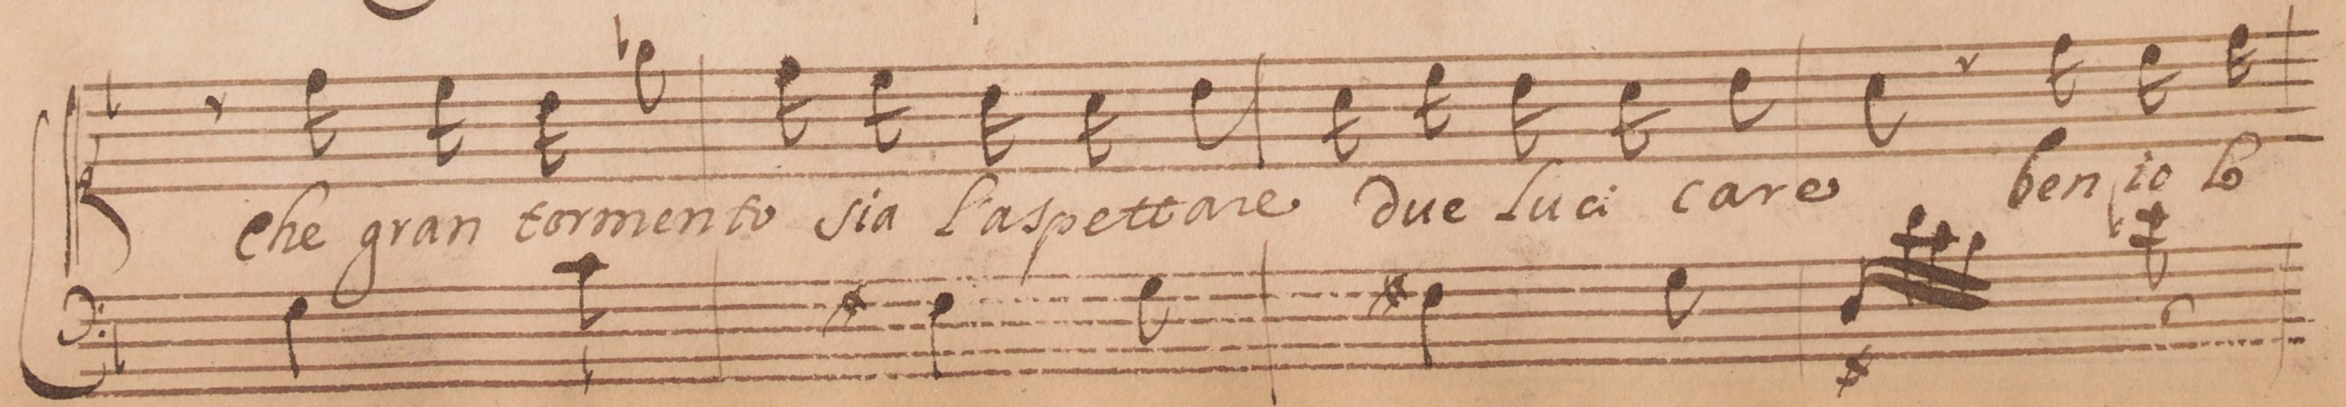 Che gran tormento sia l'aspettare due luci care ben io lo